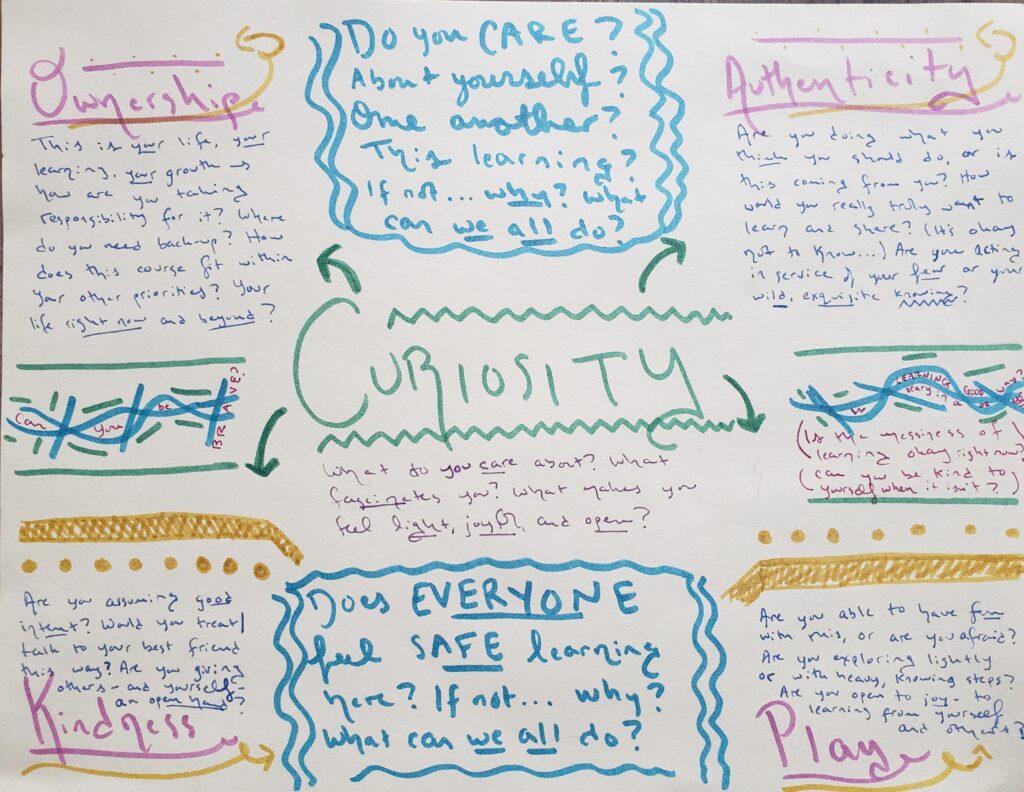 Ownership
This is your life, your
learning, your growth
how are you taking
responsibility for it? Where
do you need backup? How
does this course fit within
your other priorities? Your
life right now and beyond?
Do you CARE?
About yourself?
One another?
This learning?
If not... why? What
can we all do?
Authenticity
Are you doing what you
think you should do, or is
this coming from you? How
would you really truly want to
learn and share? (It's okay
not to know...) Are you acting
in service of your fear or your
wild, exquisite knowing?
Can you be BRAVE?
CURIOSITY
What do you care about? What
fascinates you? What makes you
feel light, joyful, and open?
LEARNING
scary in a GOOD way?
(Is the messiness of
learning okay right now?)
(Can you be kind to
yourself when it isn't?)
Are you assuming good
intent? Would you treat/
talk to your best friend
this way? Are you giving
others - and yourself -
an open hand?
Kindness
Does EVERYONE
feel SAFE learning
here? If not... why?
What can we all do?
Are you able to have fun
with this, or are you afraid?
Are you exploring lightly
or with heavy, knowing steps?
Are you open to joy - to
learning from yourself
and others?
Play